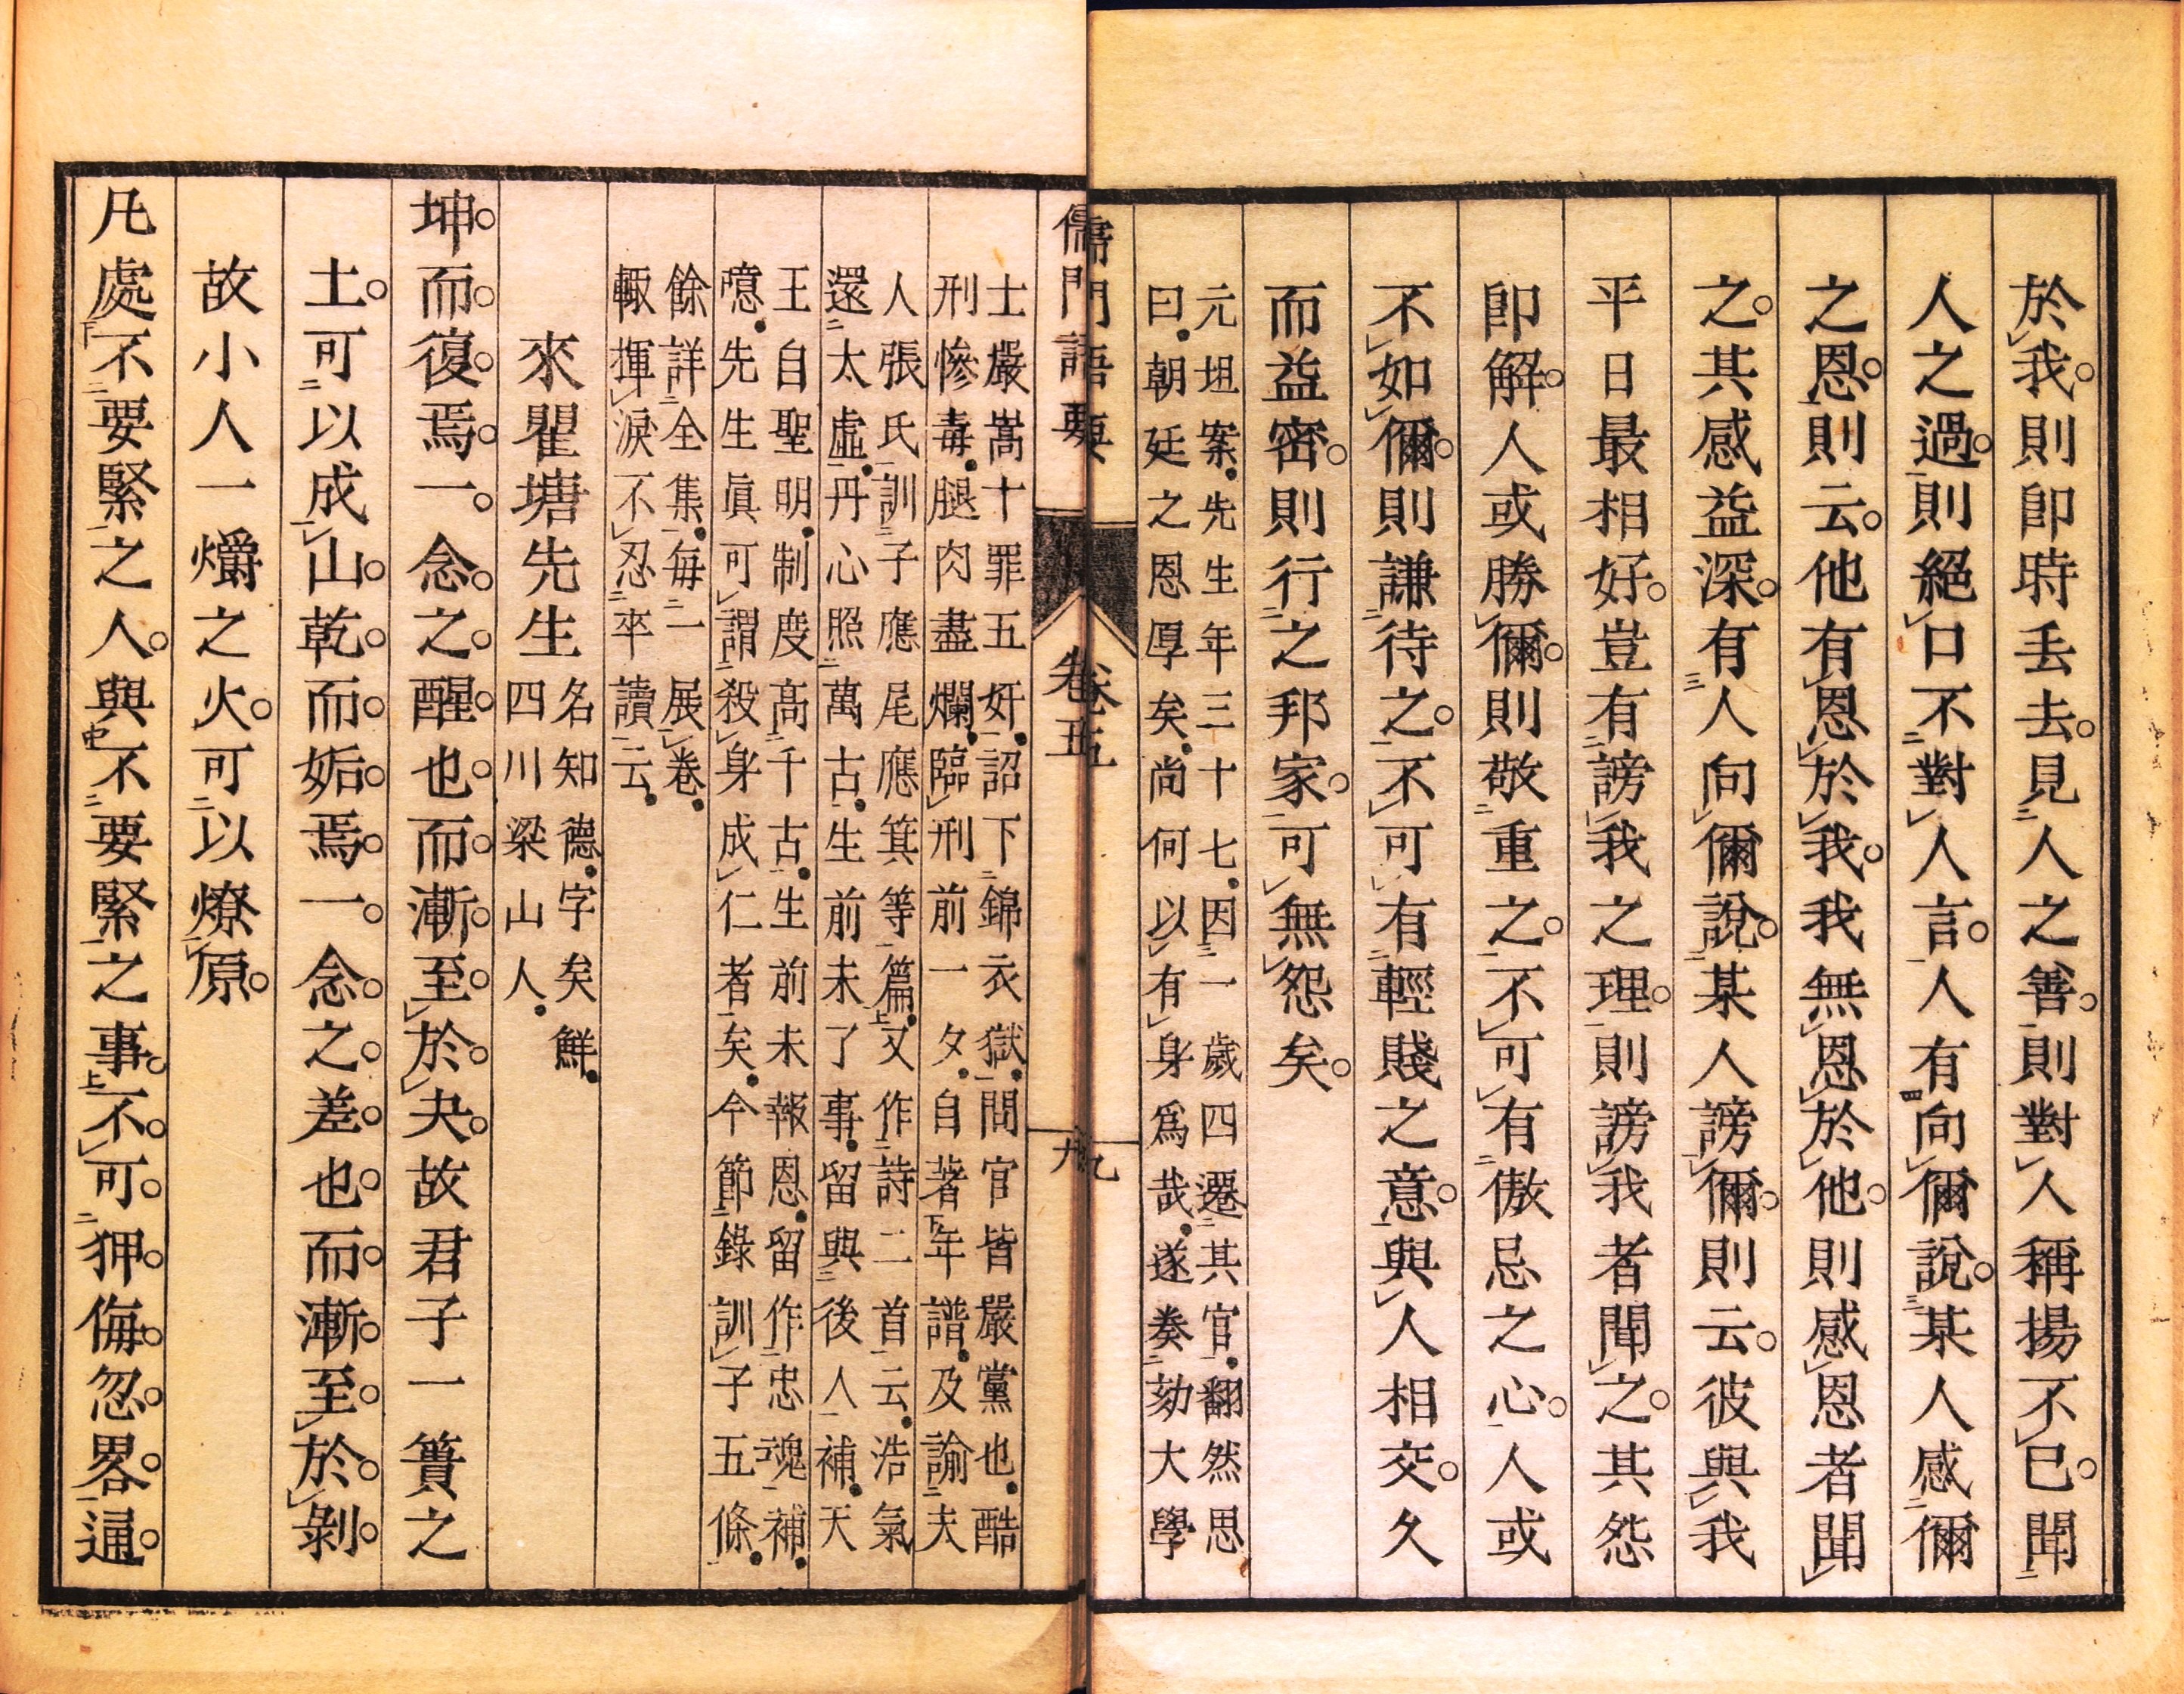 於我則卽時丢去見人之善則對人稱揚不已聞
人之過則絕口不對人言人有向儞說某人感儞
之恩則云他有恩於我我無恩於他則感恩者聞
之其感益深有人向儞說某人謗儞則云彼與我
平日最相好豈有謗我之理則謗我者聞之其怨
卽解人或勝儞則敬重之不可有傲忌之心人或
不如儞則謙待之不可有輕賤之意與人相交久
而益密則行之邦家可無怨矣
元坦案先生年三十七因一歲四遷其官翻然思
曰朝廷之恩厚矣尚何以有身爲哉遂奏劾大學
儒門語要 卷五 九
士嚴嵩十罪五奸詔下錦衣獄間官皆嚴黨也酷
刑慘毒腿肉盡爛臨刑前一夕自著年譜及諭夫
人張氏訓子應尾應箕等篇又作詩二首云浩氣
還太虛丹心照萬古生前未了事留與後人補天
王自聖明制度高千古生前未報恩留作忠魂補
噫先生眞可謂殺身成仁者矣今節錄訓子五條
餘詳全集每一展卷
輒揮淚不忍卒讀云
來瞿塘先生
名知德字矣鮮
四川梁山人
坤而復焉一念之醒也而漸至於夬故君子一簣之
土可以成山乾而姤焉一念之差也而漸至於剝
故小人一爝之火可以燎原
凡處不要緊之人與不要緊之事不可狎侮忽畧通